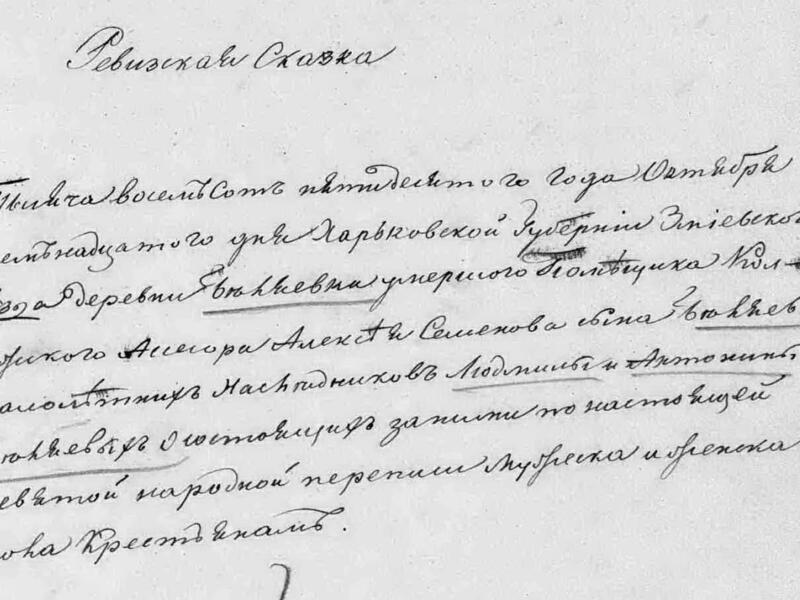 Ревизская Сказка
Тысяча восемьсотъ пятидесятого года Октября
семьнадцатого дня Харьковской Губерніи Зміевского
езда деревни умершого Помѣщика Кол-
жского Ассесора Алексѣя Семенова сына
алолѣтнихъ Наслѣдниковъ Людмилы и Антонины
о состоящихъ за ними по настоящей
евятой народной переписи мужеска и женска
пола Крестьянамъ.